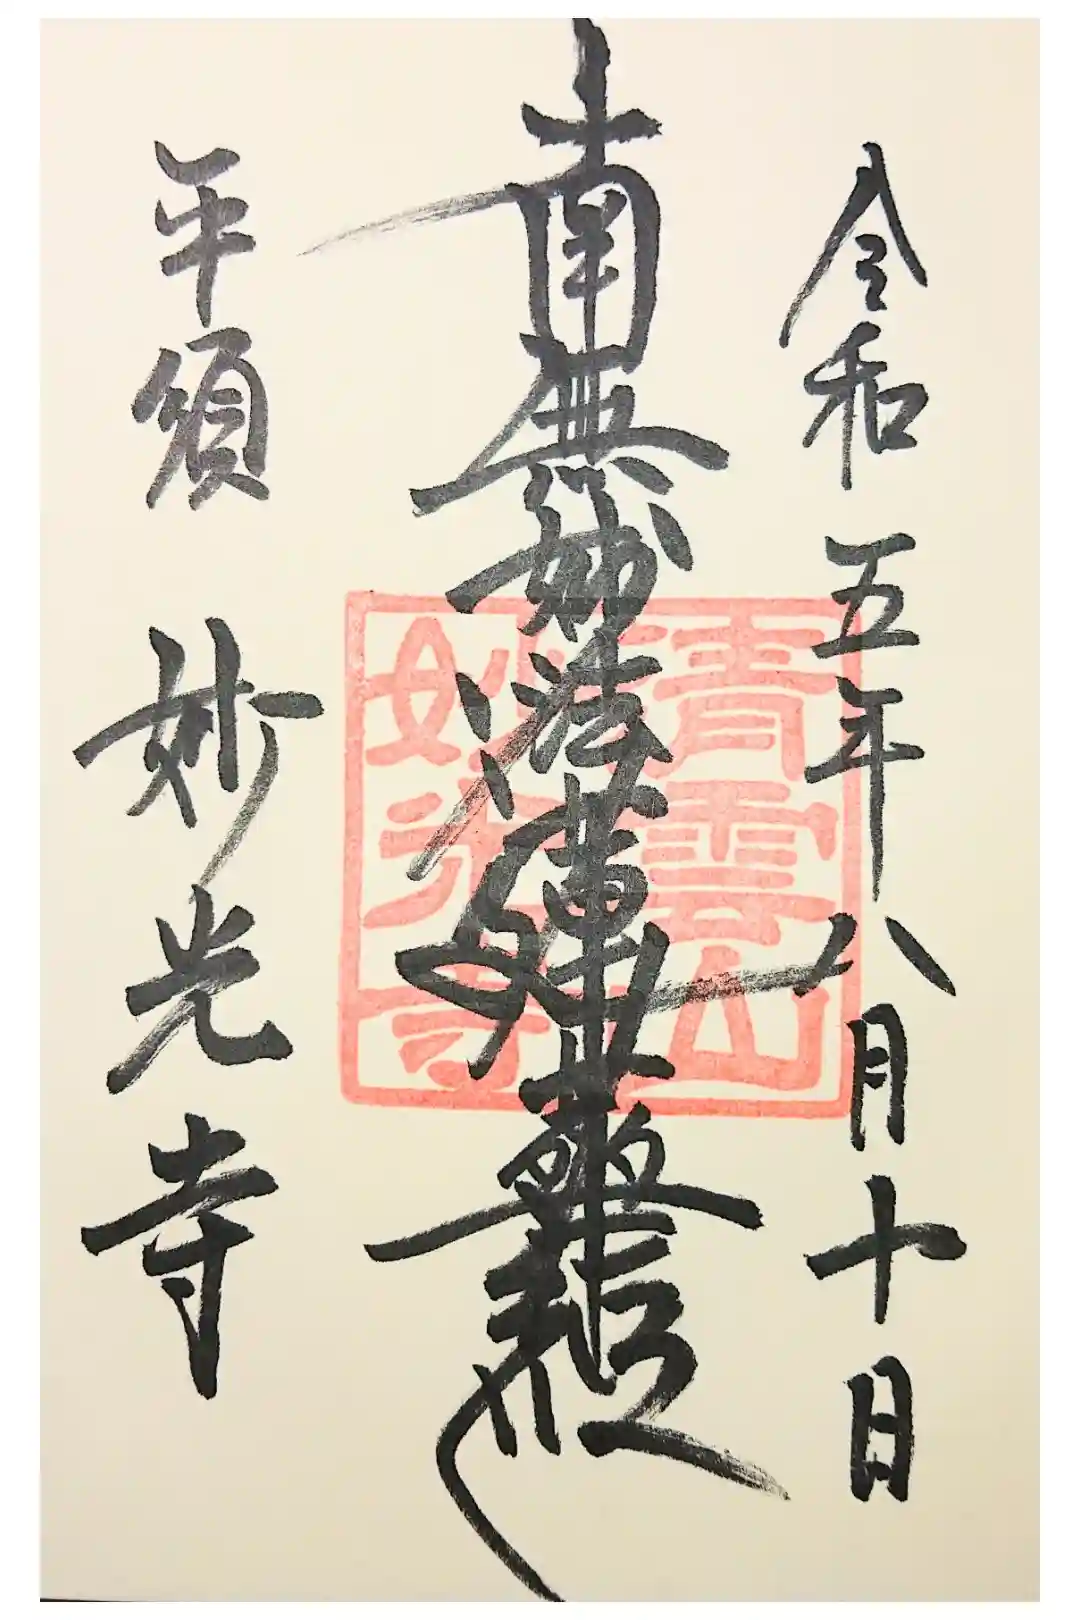 令和五年八月十日
南無妙法蓮華経
平須 妙光寺
青雲山
妙光寺